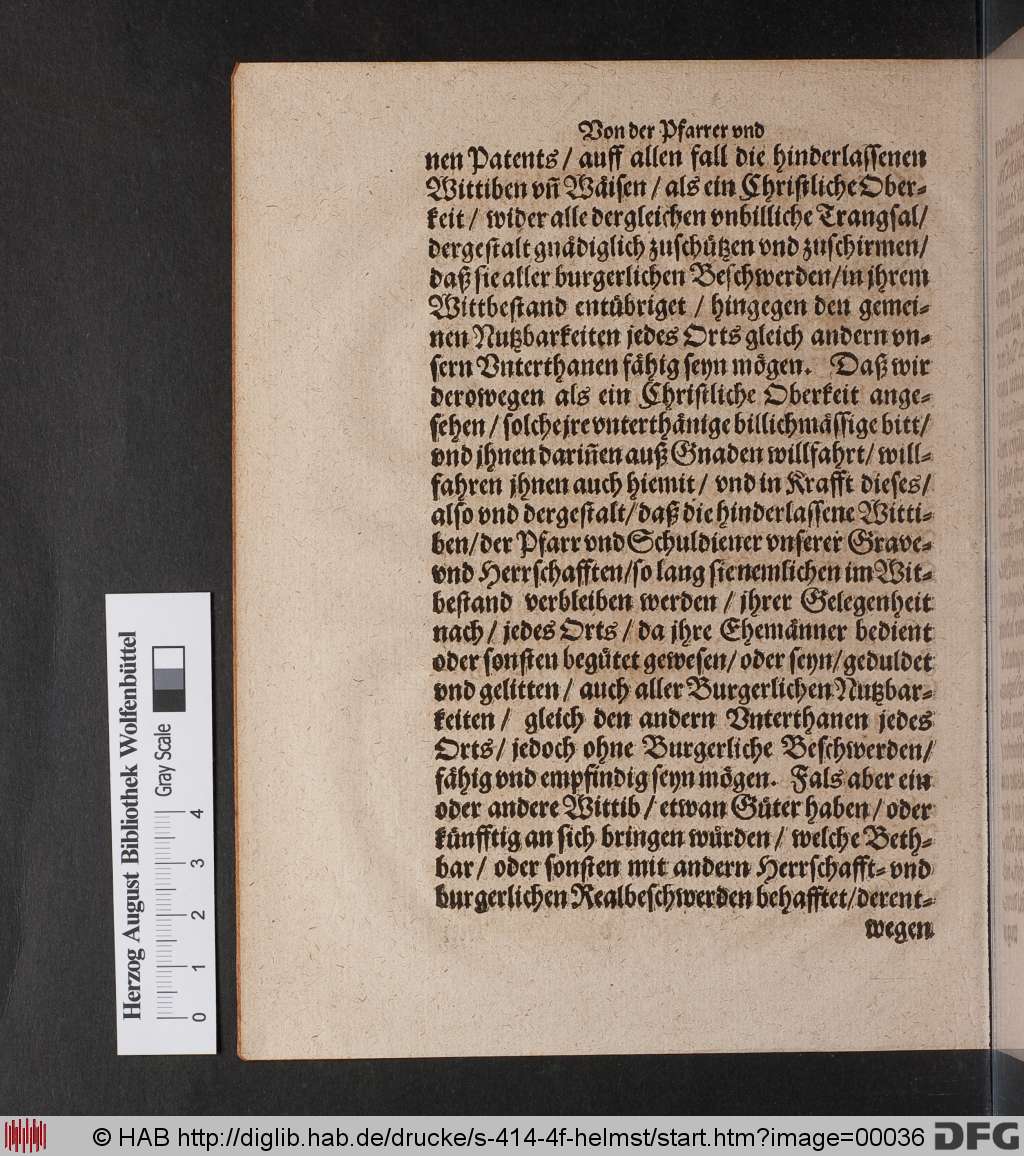 Von der Pfarrer vnd
nen Patents / auff allen fall die hinderlassenen
Wittiben vñ Wäisen / als ein Christliche Ober-
keit / wider alle dergleichen vnbilliche Trangsal /
dergestalt gnädiglich zuschützen vnd zuschirmen /
daß sie aller burgerlichen Beschwerden / in jhrem
Wittbestand entübriget / hingegen den gemei-
nen Nutzbarkeiten jedes Orts gleich andern vn-
sern Vnterthanen fähig seyn mögen. Daß wir
derowegen als ein Christliche Oberkeit ange-
sehen / solche jre vnterthänige billichmässige bitt /
vnd jhnen dariñen auß Gnaden willfahrt / will-
fahren jhnen auch hiemit / vnd in Krafft dieses /
also vnd dergestalt / daß die hinderlassene Witti-
ben / der Pfarr vnd Schuldiener vnserer Grave-
vnd Herrschafften / so lang sie nemlichen im Wit-
bestand verbleiben werden / jhrer Gelegenheit
nach / jedes Orts / da jhre Ehemänner bedient
oder sonsten begütet gewesen / oder seyn / geduldet
vnd gelitten / auch aller Burgerlichen Nutzbar-
keiten / gleich den andern Vnterthanen jedes
Orts / jedoch ohne Burgerliche Beschwerden /
fähig vnd empfindig seyn mögen. Fals aber ein
oder andere Wittib / etwan Güter haben / oder
künfftig an sich bringen würden / welche Beth-
bar / oder sonsten mit andern Herrschafft- vnd
burgerlichen Realbeschwerden behafftet / derent-
wegen
Herzog August Bibliothek Wolfenbüttel
Gray Scale
0 1 2 3 4
© HAB http://diglib.hab.de/drucke/s-414-4f-helmst/start.htm?image=00036
DFG